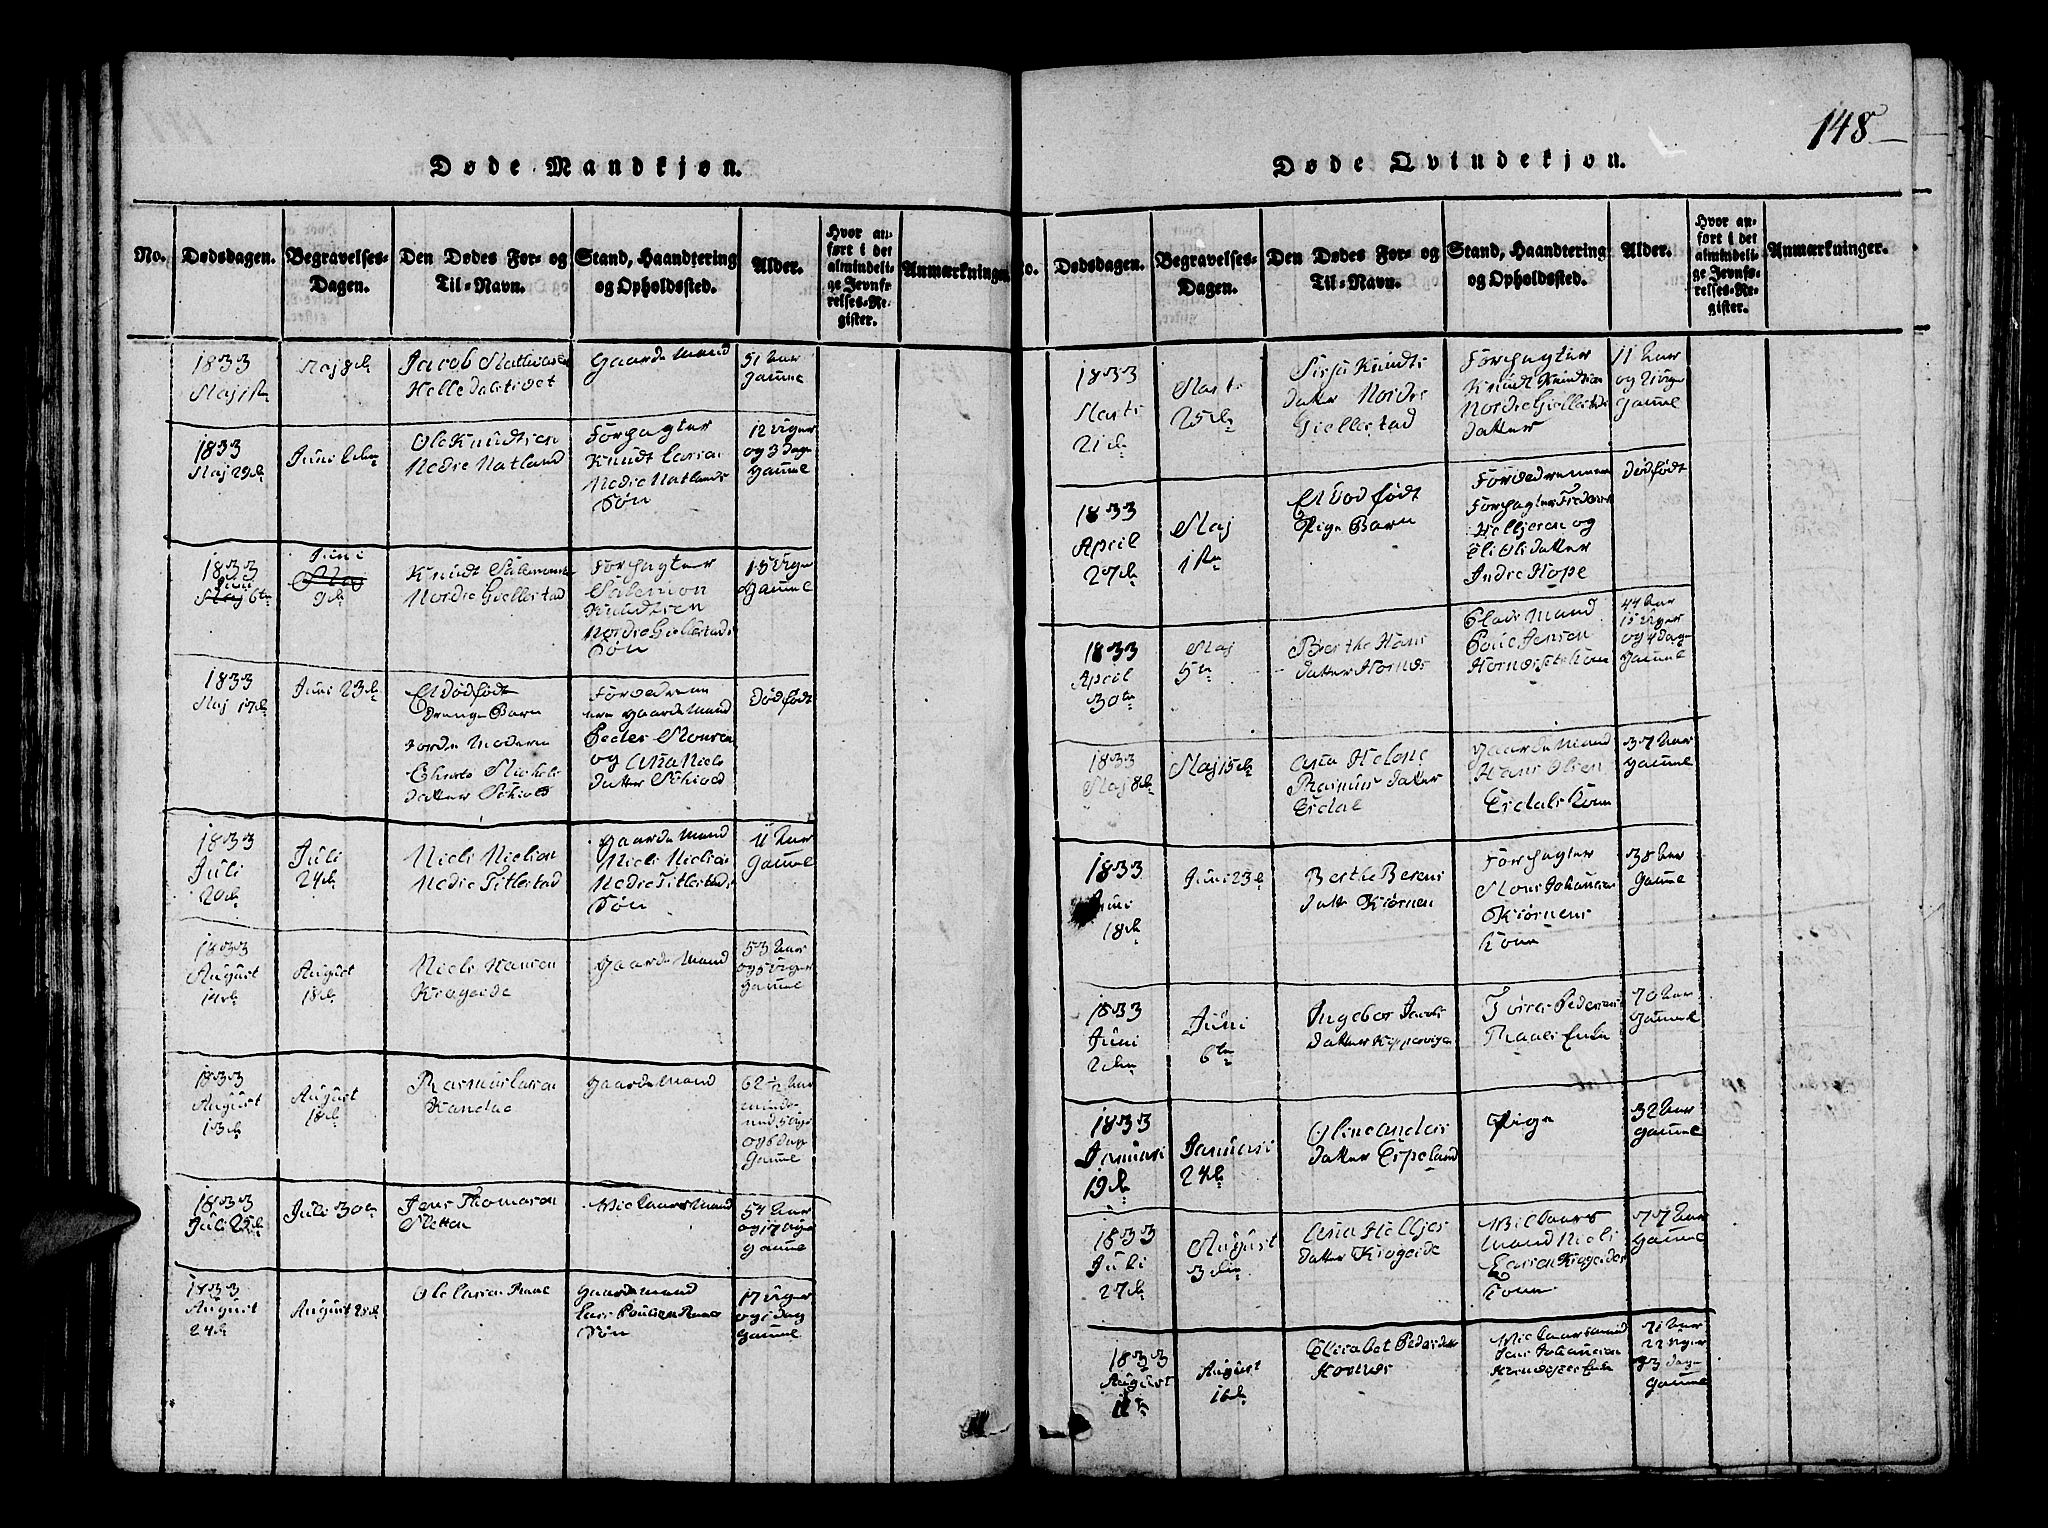 148
Døde Mandkjøn.
No.
Dødsdagen.
Begravelses-
Dagen.
Den Dødes For- og
Til-Navn.
Stand, Haandtering
og Opholdssted.
Alder.
Hvor an-
ført i det
almindeli-
ge Jevnfø-
relses-Re-
gister.
Anmærkninger
1833
Maj 1ste
Maj 8de
Jacob Mathiesen
Helledalstvedt
Gaardemand
51 Aar
Gammel
1833
Maj 29de
Juni 2den
Ole Knudtsen
Nedre Natland
Forpagter
Knudt Larsen
Nedre Natlands
Søn
12 Uger
og 3 Dage
Gammel
1833
Juni
Maj 6te
Juni
Maj
9de
Knudt Salemonsen
Nordre Giellestad
Forpagter
Salemon
Knudtsen
Nordre Giellestads
Søn
15 Uger
Gammel
1833
Maj 17de
Juni 23de
Et Dødfødt
Drenge Barn
Jorde Moderen
Michels
Datter Schiold
Forældrene
ere Gaardemand
Peder Monsen
og Ana Niels
Datter Schiold
Dødfødt
1833
Juli
20de
Juli
24de
Niels Nielsen
Nedre Titlestad
Gaardemand
Niels Nielsen
Nedre Titlestads
Søn
Aar
Gammel
1833
August
14de
August
18de
Niels Hansen
Krageide
Gaardemand
53 Aar
og 5 Uger
Gammel
1833
August
13de
August
18de
Rasmus Larsen
Gaardemand
62 1/2 Aar
og 6 Dage
Gammel
1833
Juli 25de
Juli 30te
Jens Thomasen
Sletten
Vilkaarsmand
54 Aar
og 17 Uger
Gammel
1833
August
24de
August 28de
Ole Larsen Raae
Gaardemand
Lars Poulsen Raaes
Søn
17 Uger
og 5 Dage
Gammel
Døde Qvindekjøn.
No.
Dødsdagen.
Begravelses-
Dagen.
Den Dødes For- og
Til-Navn.
Stand, Haandtering
og Opholdssted.
Alder.
Hvor an-
ført i det
almindeli-
ge Jevnfø-
relses-Re-
gister.
Anmærkninger.
1833
Marts
21de
Marts
25de
Sirja Knudts
Datter Nordre
Giellestad
Forpagter
Knudt Knudtsen
Nordre Giellestads
Datter
11 Aar
og Uger
Gammel
1833
April
27de
Maj
1ste
Et Dødfødt
Pige Barn
Forældrenne
Forpagter
og
Datter
Indre Hope
Dødfødt
1833
April
30te
Maj
5te
Berthe Hans
Datter Hornæs
Plads Mand
Poul Jensen
Kone
44 Aar
15 Uger
og 4 Dage
Gammel
1833
Maj 8de
Maj 15de
Ana Helene
Rasmus Datter
Erdal
Gaardemand
Hans Olsen
Erdals Kone
37 Aar
Gammel
1833
Juni
18de
Juni 23de
Berthe Berens
Datter Kiørnen
Forpagter
Mons Johannesen
Kiørnens
Kone
38 Aar
Gammel
1833
Juni
2den
Juni
6te
Ingebor Jacobs
Datter
Pedersens
Enke
70 Aar
Gammel
1833
Januari
19de
Januari
24de
Oline Anders
Datter Espeland
Pige
32 Aar
Gammel
1833
Juli
27de
August
3die
Ana Helljes
Datter Krageide
Vilkaars
Mand Niels
Larsen Krageides
Kone
77 Aar
Gammel
1833
August
August
16de
Elisabet Peders
Hornæs
Vilkaarsmand
Jens Johannesen
Enke
71 Aar
22 Uger
og 3 Dage
Gammel